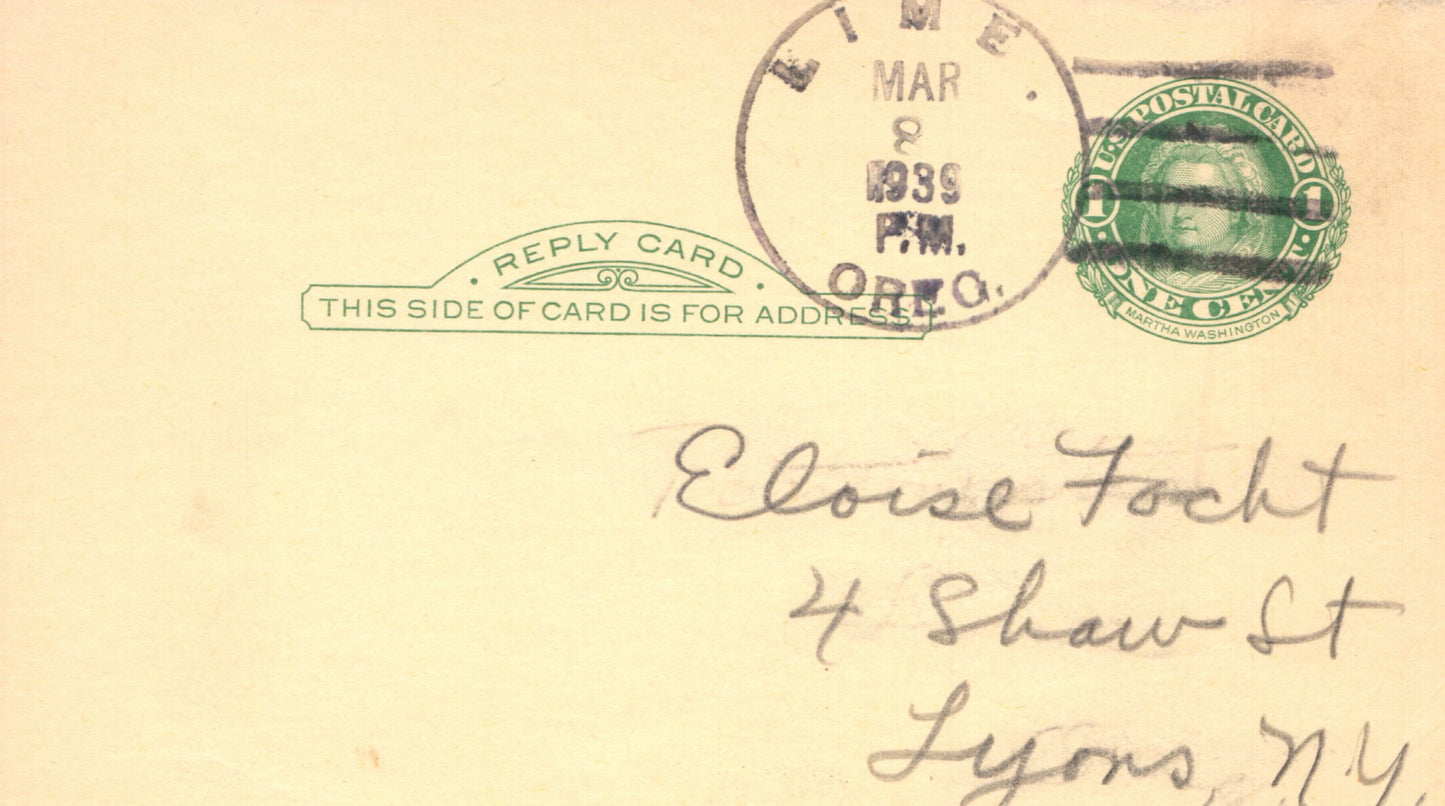 LIME.
MAR
8
1939
P.M.
OREG.
U.S. POSTAL CARD
1 1
ONE CENT
MARTHA WASHINGTON
REPLY CARD
THIS SIDE OF CARD IS FOR ADDRESS
Eloise Focht
4 Shaw St
Lyons, N.Y.